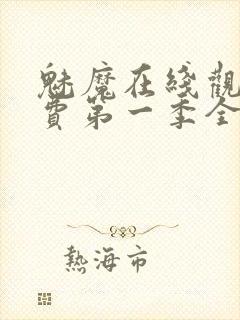 魅魔在綫觀
費第一季全
熱海市